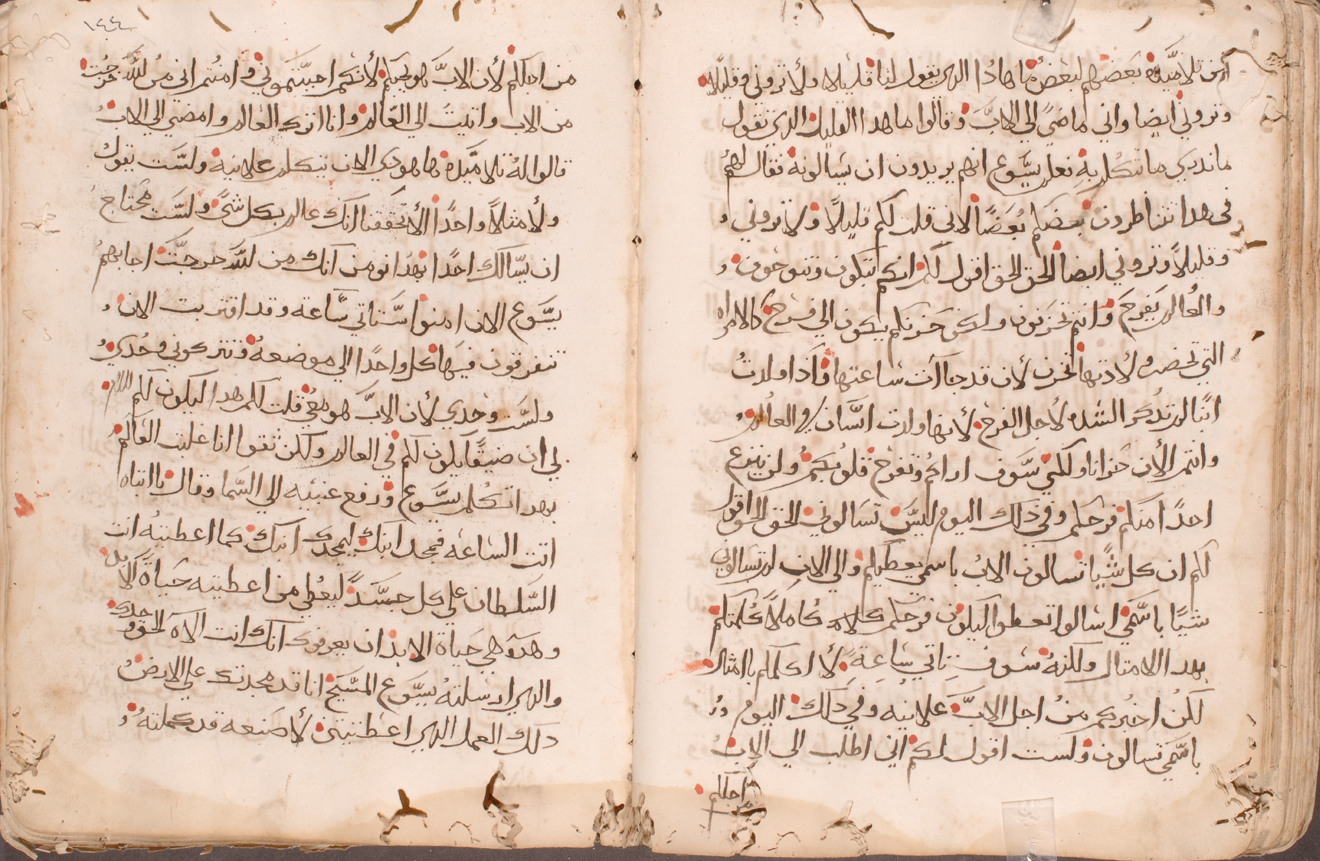 من تلاميذه بعضهم لبعض ما هادا الدي يقول لنا قليلا ولا تروني وقليلا
وتروني ايضا واني ماضي الى الاب وقالوا ما هدا القليل الدي يقول
ما ندري ما يتكلم به فعلم يسوع انهم يريدون ان يسالونه فقال لهم
في هدا تتناظرون بعضكم بعضا لاني قلت لكم قليلا ولا تروني و
وقليلا وتروني ايضا الحق الحق اقول لكم انكم تبكون وتنوحون و
والعالم يفرح وانتم تحزنون ولكن حزنكم يكون الى فرح كالامراه
التي تحضر ولادتها تحزن لان قد جاات ساعتها فادا ولدت
ابنا لم تدكر الشده لاجل الفرح لانها ولدت انسان في العالم و
وانتم الان حزانا ولكني سوف اراكم وتفرح قلوبكم ولن ينزع
احدا منكم فرحكم وفي دلك اليوم ليس تسالوني الحق الحق اقول
لكم ان كل شيا تسالون الاب باسمي يعطيكم والى الان لم تسالون
شيا باسمي اسالوا تعطوا ليكون فرحكم كاملا كلمتكم
بهدا الامتال ولكنه سوف تاتي ساعة لا اكلمكم بالامتال
لكن اخبركم من اجل الاب علانيه وفي دلك اليوم
باسمي تسالون ولست اقول لكم اني اطلب الى الاب
اجلكم
١٤٤
من اجلكم لان الاب هو يحبكم لانكم احببتموني وامنتم اني من الله خرجت
من الاب واتيت الى العالم وانا اترك العالم وامضي الى الاب
قالوا له تلاميده ها هودي الان تتكلم علانية ولست تقول
ولا متالا واحدا الان تحققنا انك عالم بكل شي ولست محتاج
ان يسالك احدا بهدا نومن انك من الله خرجت اجابهم
يسوع الان امنوا ستاتي ساعه وقد اقتربت الان و
تتفرقون فيها كل واحدا الى موضعه وتتركوني وحدي
ولست وحدي لان الاب هو معي قلت لكم هدا ليكون لكم السلام
بي ان ضيقا يكون لكم في العالم ولكن تقوا انا غلبت العالم
بهدا تكلم يسوع ورفع عينيه الى السما وقال يا ابتاه
اتت الساعه فمجد ابنك ليمجدك ابنك كما اعطيته انت
السلطان على كل جسد ليعطي من اعطيته حياة الابد
وهده هي حياة الابد ان يعرفوك انك انت الاه الحق وحدك
والدي ارسلته يسوع المسيح انا قد مجدتك على الارض
دلك العمل الدي اعطيتني لاصنعه قد كملته و